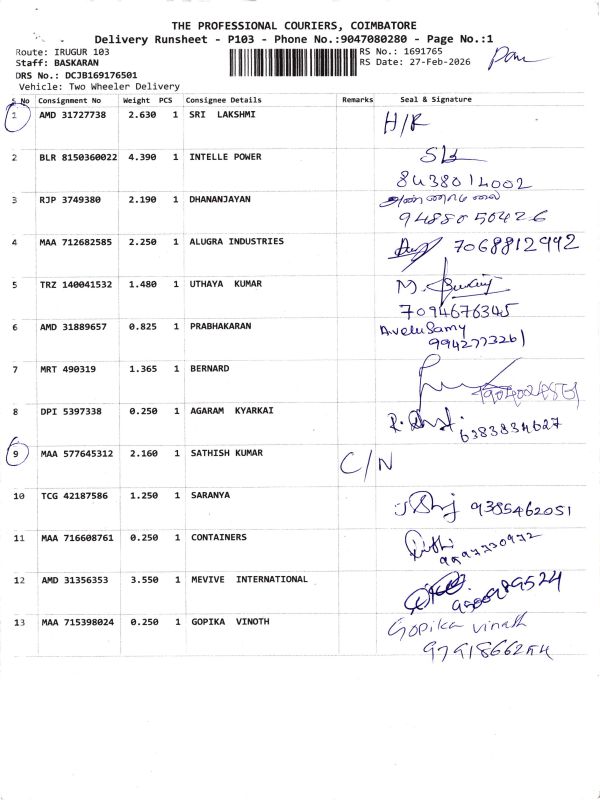 THE PROFESSIONAL COURIERS, COIMBATORE
Delivery Runsheet - P103 - Phone No.:9047080280 - Page No.:1
Route: IRUGUR 103 RS No.: 1691765
Staff: BASKARAN RS Date: 27-Feb-2026
DRS No.: DCJB169176501
Vehicle: Two Wheeler Delivery
S No Consignment No Weight PCS Consignee Details Remarks Seal & Signature
1 AMD 31727738 2.630 1 SRI LAKSHMI H/R
2 BLR 8150360022 4.390 1 INTELLE POWER
8438014002
3 RJP 3749380 2.190 1 DHANANJAYAN அண்ணாமலை
9488050426
4 MAA 712682585 2.250 1 ALUGRA INDUSTRIES 7068812992
5 TRZ 140041532 1.480 1 UTHAYA KUMAR M.
7094676345
6 AMD 31889657 0.825 1 PRABHAKARAN Avelusamy
9942773261
7 MRT 490319 1.365 1 BERNARD
8 DPI 5397338 0.250 1 AGARAM KYARKAI R.
6383834627
9 MAA 577645312 2.160 1 SATHISH KUMAR C/N
10 TCG 42187586 1.250 1 SARANYA 9385462051
11 MAA 716608761 0.250 1 CONTAINERS
12 AMD 31356353 3.550 1 MEVIVE INTERNATIONAL
13 MAA 715398024 0.250 1 GOPIKA VINOTH Gopika vinoth